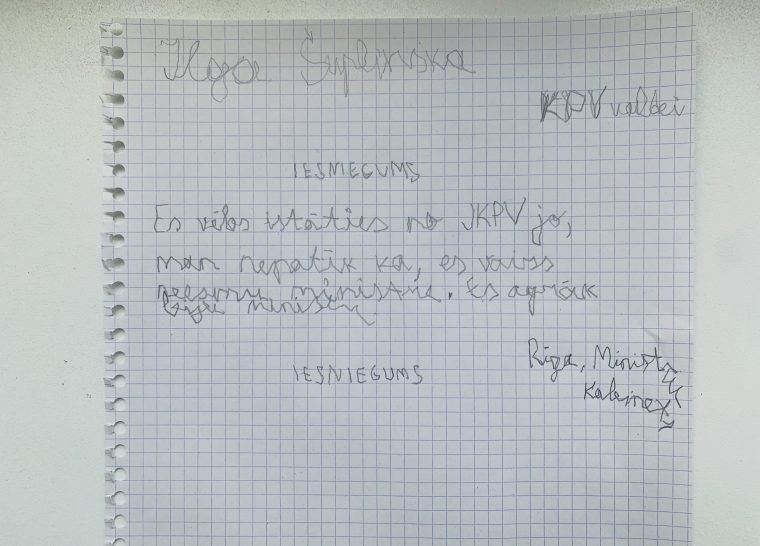 Ilga Šuplinska
KPV valdei
IESNIEGUMS
Es vēlos istāties no JKPV jo,
man nepatīk ka, es vairs
neesmu ministre. Es agrāk
biju
IESNIEGUMS
Rīga, Minist
Kabinet